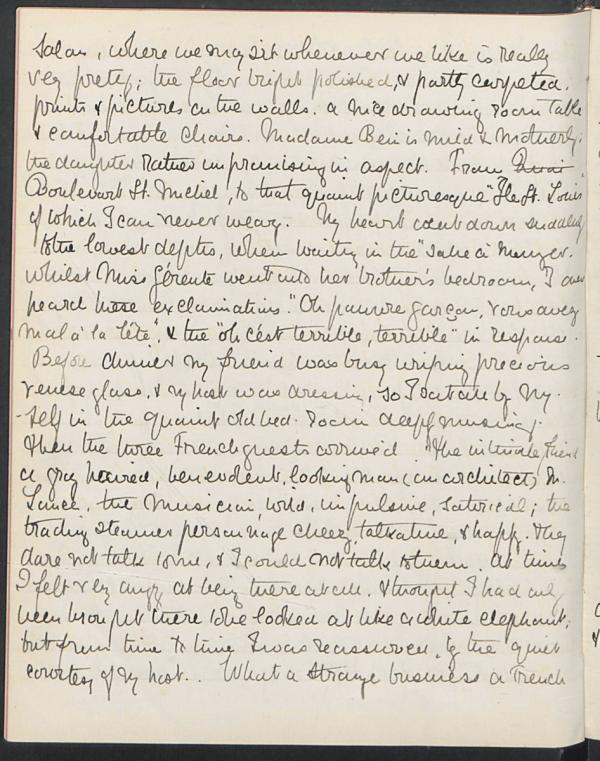 Salon, where we may sit whenever we like is really
very pretty; the floor bright polished, & partly carpeted.
prints & pictures on the walls. a nice drawing room table
& comfortable chairs. Madame Bein is mild & motherly;
the daughter rather unpromising in aspect. From Quai
Boulevart St. Michel, to that quaint picturesque "Ile St. Louis"
of which I can never weary. My heart went down suddenly
to the lowest depths, when waiting in the "salle à manger.
whilst Miss Gérente went into her brother's bedroom, I over
heard these exclamations. "Oh pauvre garçon, vous avez
mal à la tête", & the "oh c'est terrible, terrible" in response.
Before dinner my friend was busy wiping precious
venese glass, & my host was dressing, so I sat all by my-
self in the quaint old bed-room deeply musing.
Then the three French guests arrived. The intimate friend
a gray haired, benevolent, looking man (an architect) M.
Lance, the musician, wild, impulsive, satirical; the
trading steamer personage cheery, talkative, & happy. They
dare not talk to me, & I could not talk to them. at times
I felt very angry at being there at all. & thought I had only
been brought there to be looked at like a white elephant;
but from time to time I was reassured, by the quiet
courtesy of my host.. What a strange business a French